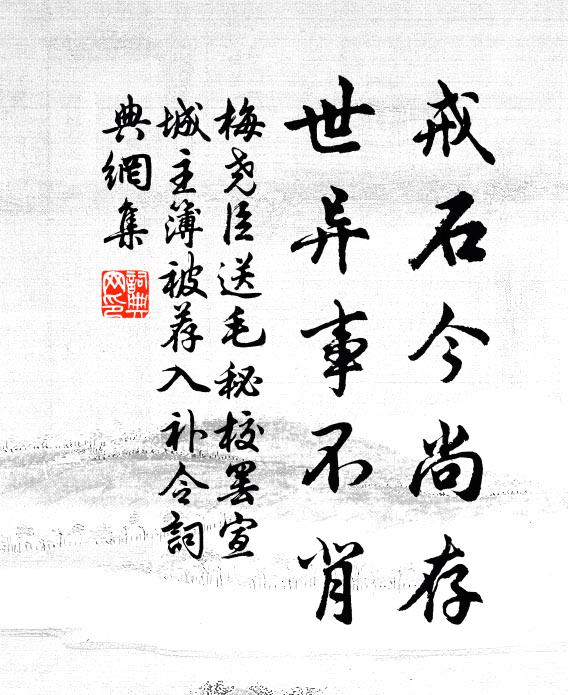 戒石今尚存
世异事不肖
梅尧臣送毛秘校罢宣
城主簿被荐入补令詞
典網集
詞典
网印